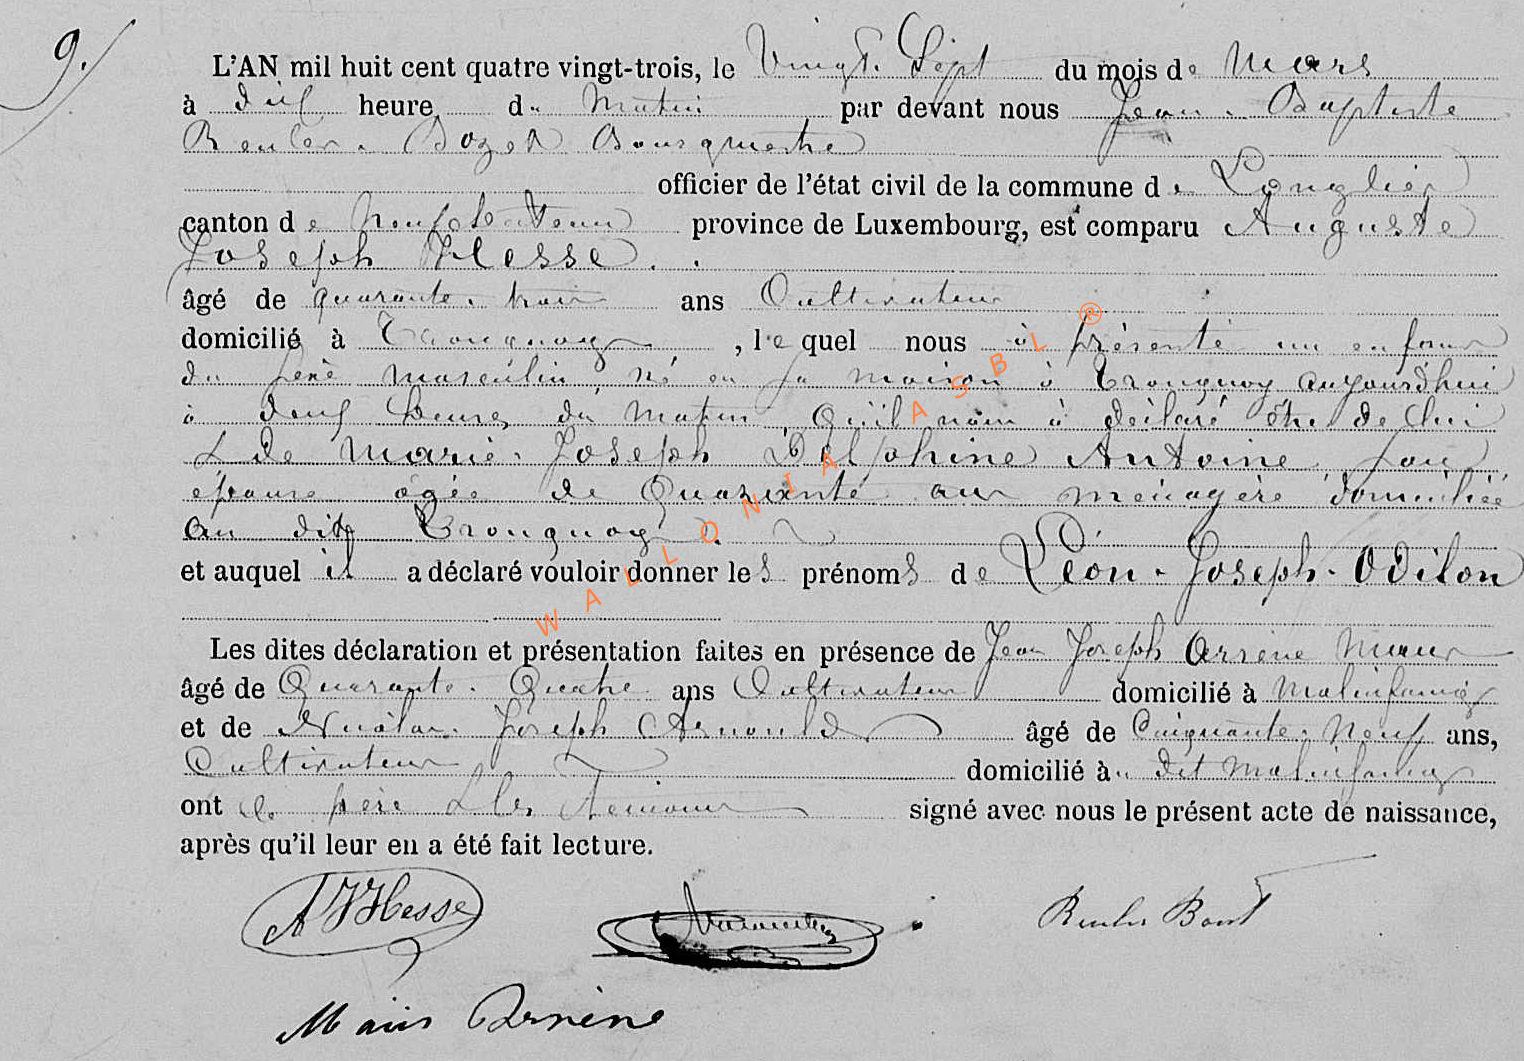 9.
L'AN mil huit cent quatre vingt-trois, le Vingt Sept du mois de Mars
à dix heure du Matin par devant nous Jean Baptiste
Reuler Bozet Bourgmestre
officier de l'état civil de la commune de Longlier
canton de Neufchateau province de Luxembourg, est comparu Auguste
Joseph Hesse.
âgé de quarante trois ans Cultivateur
domicilié à Tronquoy, lequel nous à présenté un enfant
du sexe masculin, né en sa maison à Tronquoy aujourd'hui
à deux heures du matin, qu'il nous à déclaré être de lui
& de Marie Joseph Delphine Antoine, son
épouse agée de Quarante ans ménagère domiciliée
au dit Tronquoy.
et auquel il a déclaré vouloir donner les prénoms de Léon-Joseph-Odilon
Les dites déclaration et présentation faites en présence de Jean Joseph Arsène
âgé de Quarante Quatre ans Cultivateur domicilié à Molinfaing
et de Nicolas Joseph Arnould âgé de Cinquante Neuf ans,
Cultivateur domicilié à dit Molinfaing
ont le père & les Témoins signé avec nous le présent acte de naissance,
après qu'il leur en a été fait lecture.
AJ Hesse
Reuler Bozet
Arsène
WALLONIA ASBL ®